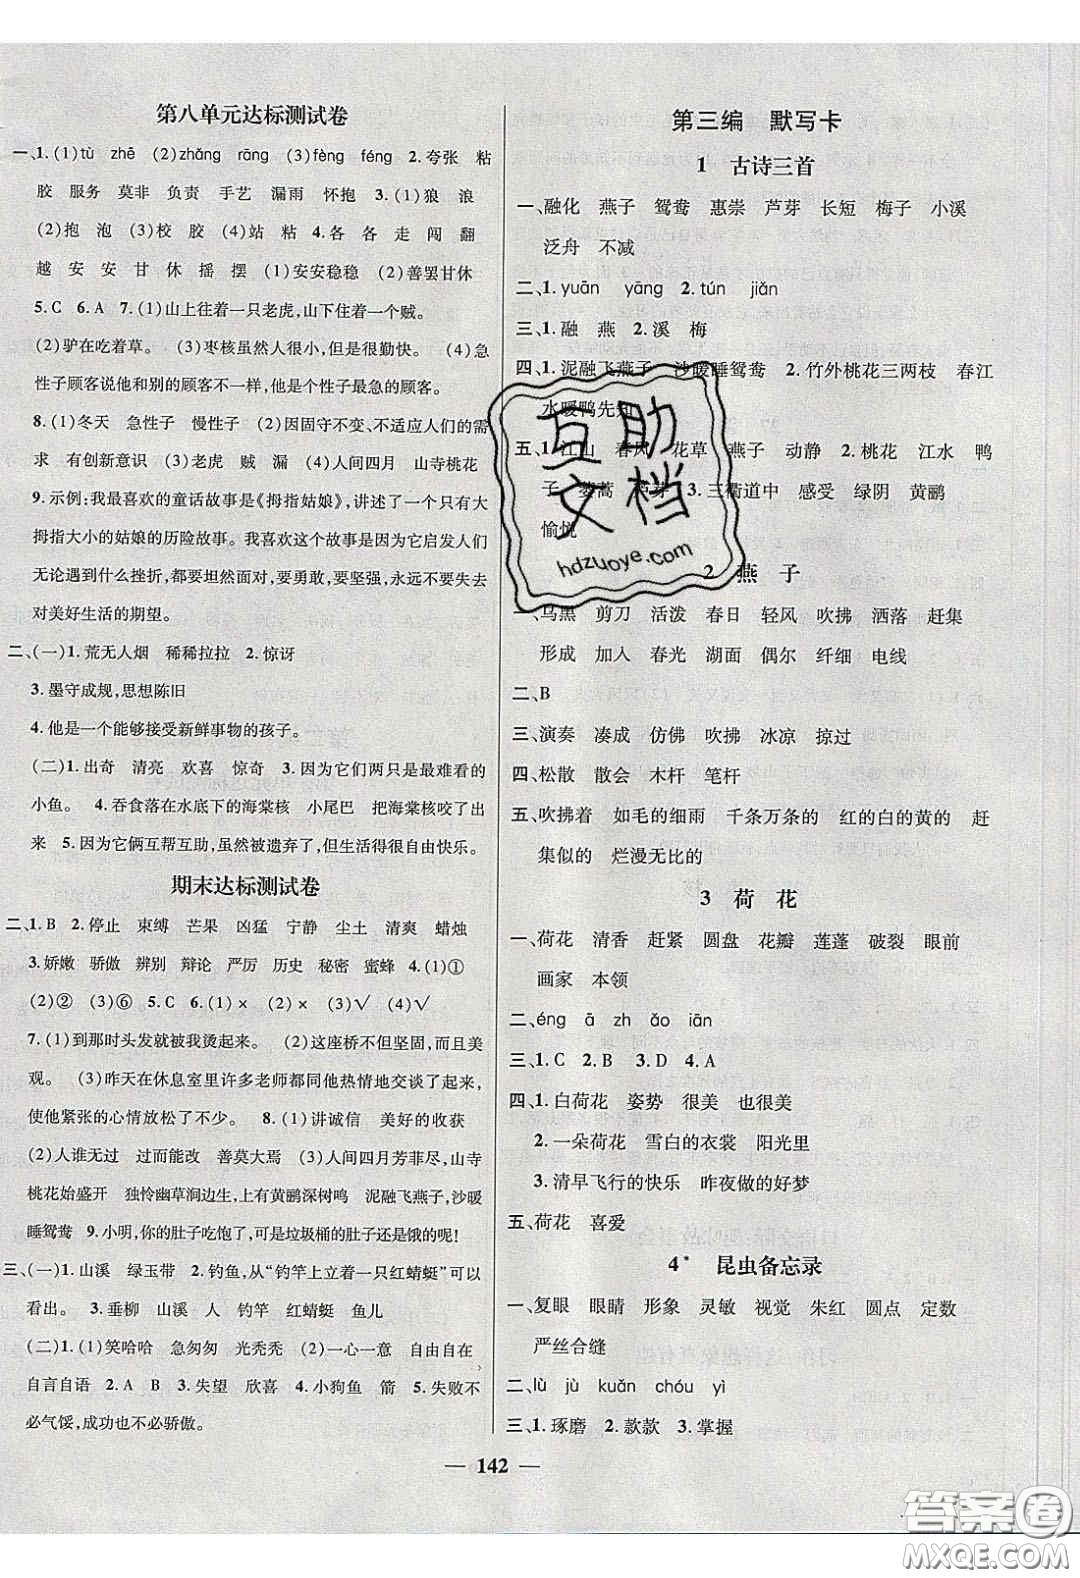 第八单元达标测试卷
一、1. (1) tù zhē (2) zhǎng rāng (3) fèng féng 2. 夸张 粘
胶 服务 莫非 负责 手艺 漏雨 怀抱 3. (1) 狼 浪
(2) 抱 泡 (3) 校 胶 (4) 站 粘 4. 各 各 走 闯 翻
越 安 安 甘 休 摇 摆 (1) 安安稳稳 (2) 善罢甘休
5. C 6. A 7. (1) 山上往着一只老虎,山下住着一个贼。
(2) 驴在吃着草。 (3) 枣核虽然人很小,但是很勤快。 (4) 急
性子顾客说他和别的顾客不一样,他是个性子最急的顾客。
8. (1) 冬天 急性子 慢性子 (2) 因固守不变、不适应人们的需
求 有创新意识 (3) 老虎 贼 漏 (4) 人间四月 山寺桃花
9. 示例:我最喜欢的童话故事是《拇指姑娘》,讲述了一个只有大
拇指大小的姑娘的历险故事。我喜欢这个故事是因为它启发人们
无论遇到什么挫折,都要坦然面对,要勇敢,要坚强,永远不要失去
对美好生活的期望。
二、(一) 1. 荒无人烟 稀稀拉拉 2. 惊讶
3. 墨守成规,思想陈旧
4. 他是一个能够接受新鲜事物的孩子。
(二) 1. 出奇 清亮 欢喜 惊奇 3. 因为它们两只是最难看的
小鱼。 4. 吞食落在水底下的海棠核 小尾巴 把海棠核咬了出
来 5. 因为它俩互帮互助,虽然被遗弃了,但生活得很自由快乐。
期末达标测试卷
二、1. B 2. 停止 束缚 芒果 凶猛 宁静 尘土 清爽 蜡烛
3. 娇嫩 骄傲 辨别 辩论 严厉 历史 秘密 蜜蜂 4. (1) ①
(2) ② (3) ⑥ 5. C 6. (1) × (2) × (3) √ (4) √
7. (1) 到那时头发就被我烫起来。 (2) 这座桥不但坚固,而且美
观。 (3) 昨天在休息室里许多老师都同他热情地交谈了起来,
使他紧张的心情放松了不少。 8. (1) 讲诚信 美好的收获
(2) 人谁无过 过而能改 善莫大焉 (3) 人间四月芳菲尽,山寺
桃花始盛开 独怜幽草涧边生,上有黄鹂深树鸣 泥融飞燕子,沙暖
睡鸳鸯 9. 小明,你的肚子吃饱了,可是垃圾桶的肚子还是饿的呢!
三、(一) 1. 山溪 绿玉带 2. 钓鱼,从“钓竿上立着一只红蜻蜓”可以
看出。 3. 垂柳 山溪 人 钓竿 红蜻蜓 鱼儿
(二) 1. (1) 笑哈哈 急匆匆 光秃秃 (2) 一心一意 自由自在
自言自语 2. A B 3. 失望 欣喜 4. 小狗鱼 箭 5. 失败不
必气馁,成功也不必骄傲。
第三编 默写卡
1 古诗三首
一、融化 燕子 鸳鸯 惠崇 芦芽 长短 梅子 小溪
泛舟 不减
二、1. yuān yāng 2. tún jiǎn
三、1. 融 燕 2. 溪 梅
四、1. 泥融飞燕子 沙暖睡鸳鸯 2. 竹外桃花三两枝 春江
水暖鸭先知
五、1. 江山 春风 花草 燕子 动静 2. 桃花 江水 鸭
子 蒌蒿 芦芽 3. 三衢道中 感受 绿阴 黄鹂
愉悦
2 燕子
一、乌黑 剪刀 活泼 春日 轻风 吹拂 洒落 赶集
形成 加入 春光 湖面 偶尔 纤细 电线
二、B
三、演奏 凑成 仿佛 吹拂 冰凉 掠过
四、松散 散会 木杆 笔杆
五、吹拂着 如毛的细雨 千条万条的 红的白的黄的 赶
集似的 烂漫无比的
3 荷花
一、荷花 清香 赶紧 圆盘 花瓣 莲蓬 破裂 眼前
画家 本领
二、éng ā zh ǎo iān
三、1. C 2. B 3. D 4. A
四、1. 白荷花 姿势 很美 也很美
2. 一朵荷花 雪白的衣裳 阳光里
3. 清早飞行的快乐 昨夜做的好梦
五、荷花 喜爱
4* 昆虫备忘录
一、复眼 眼睛 形象 灵敏 视觉 朱红 圆点 定数
严丝合缝
二、lù jù kuǎn chóu yì
三、1. 琢磨 2. 款款 3. 掌握
— 142 —
互助
文档
hdzuoye.com
答案圈
MXQE.COM